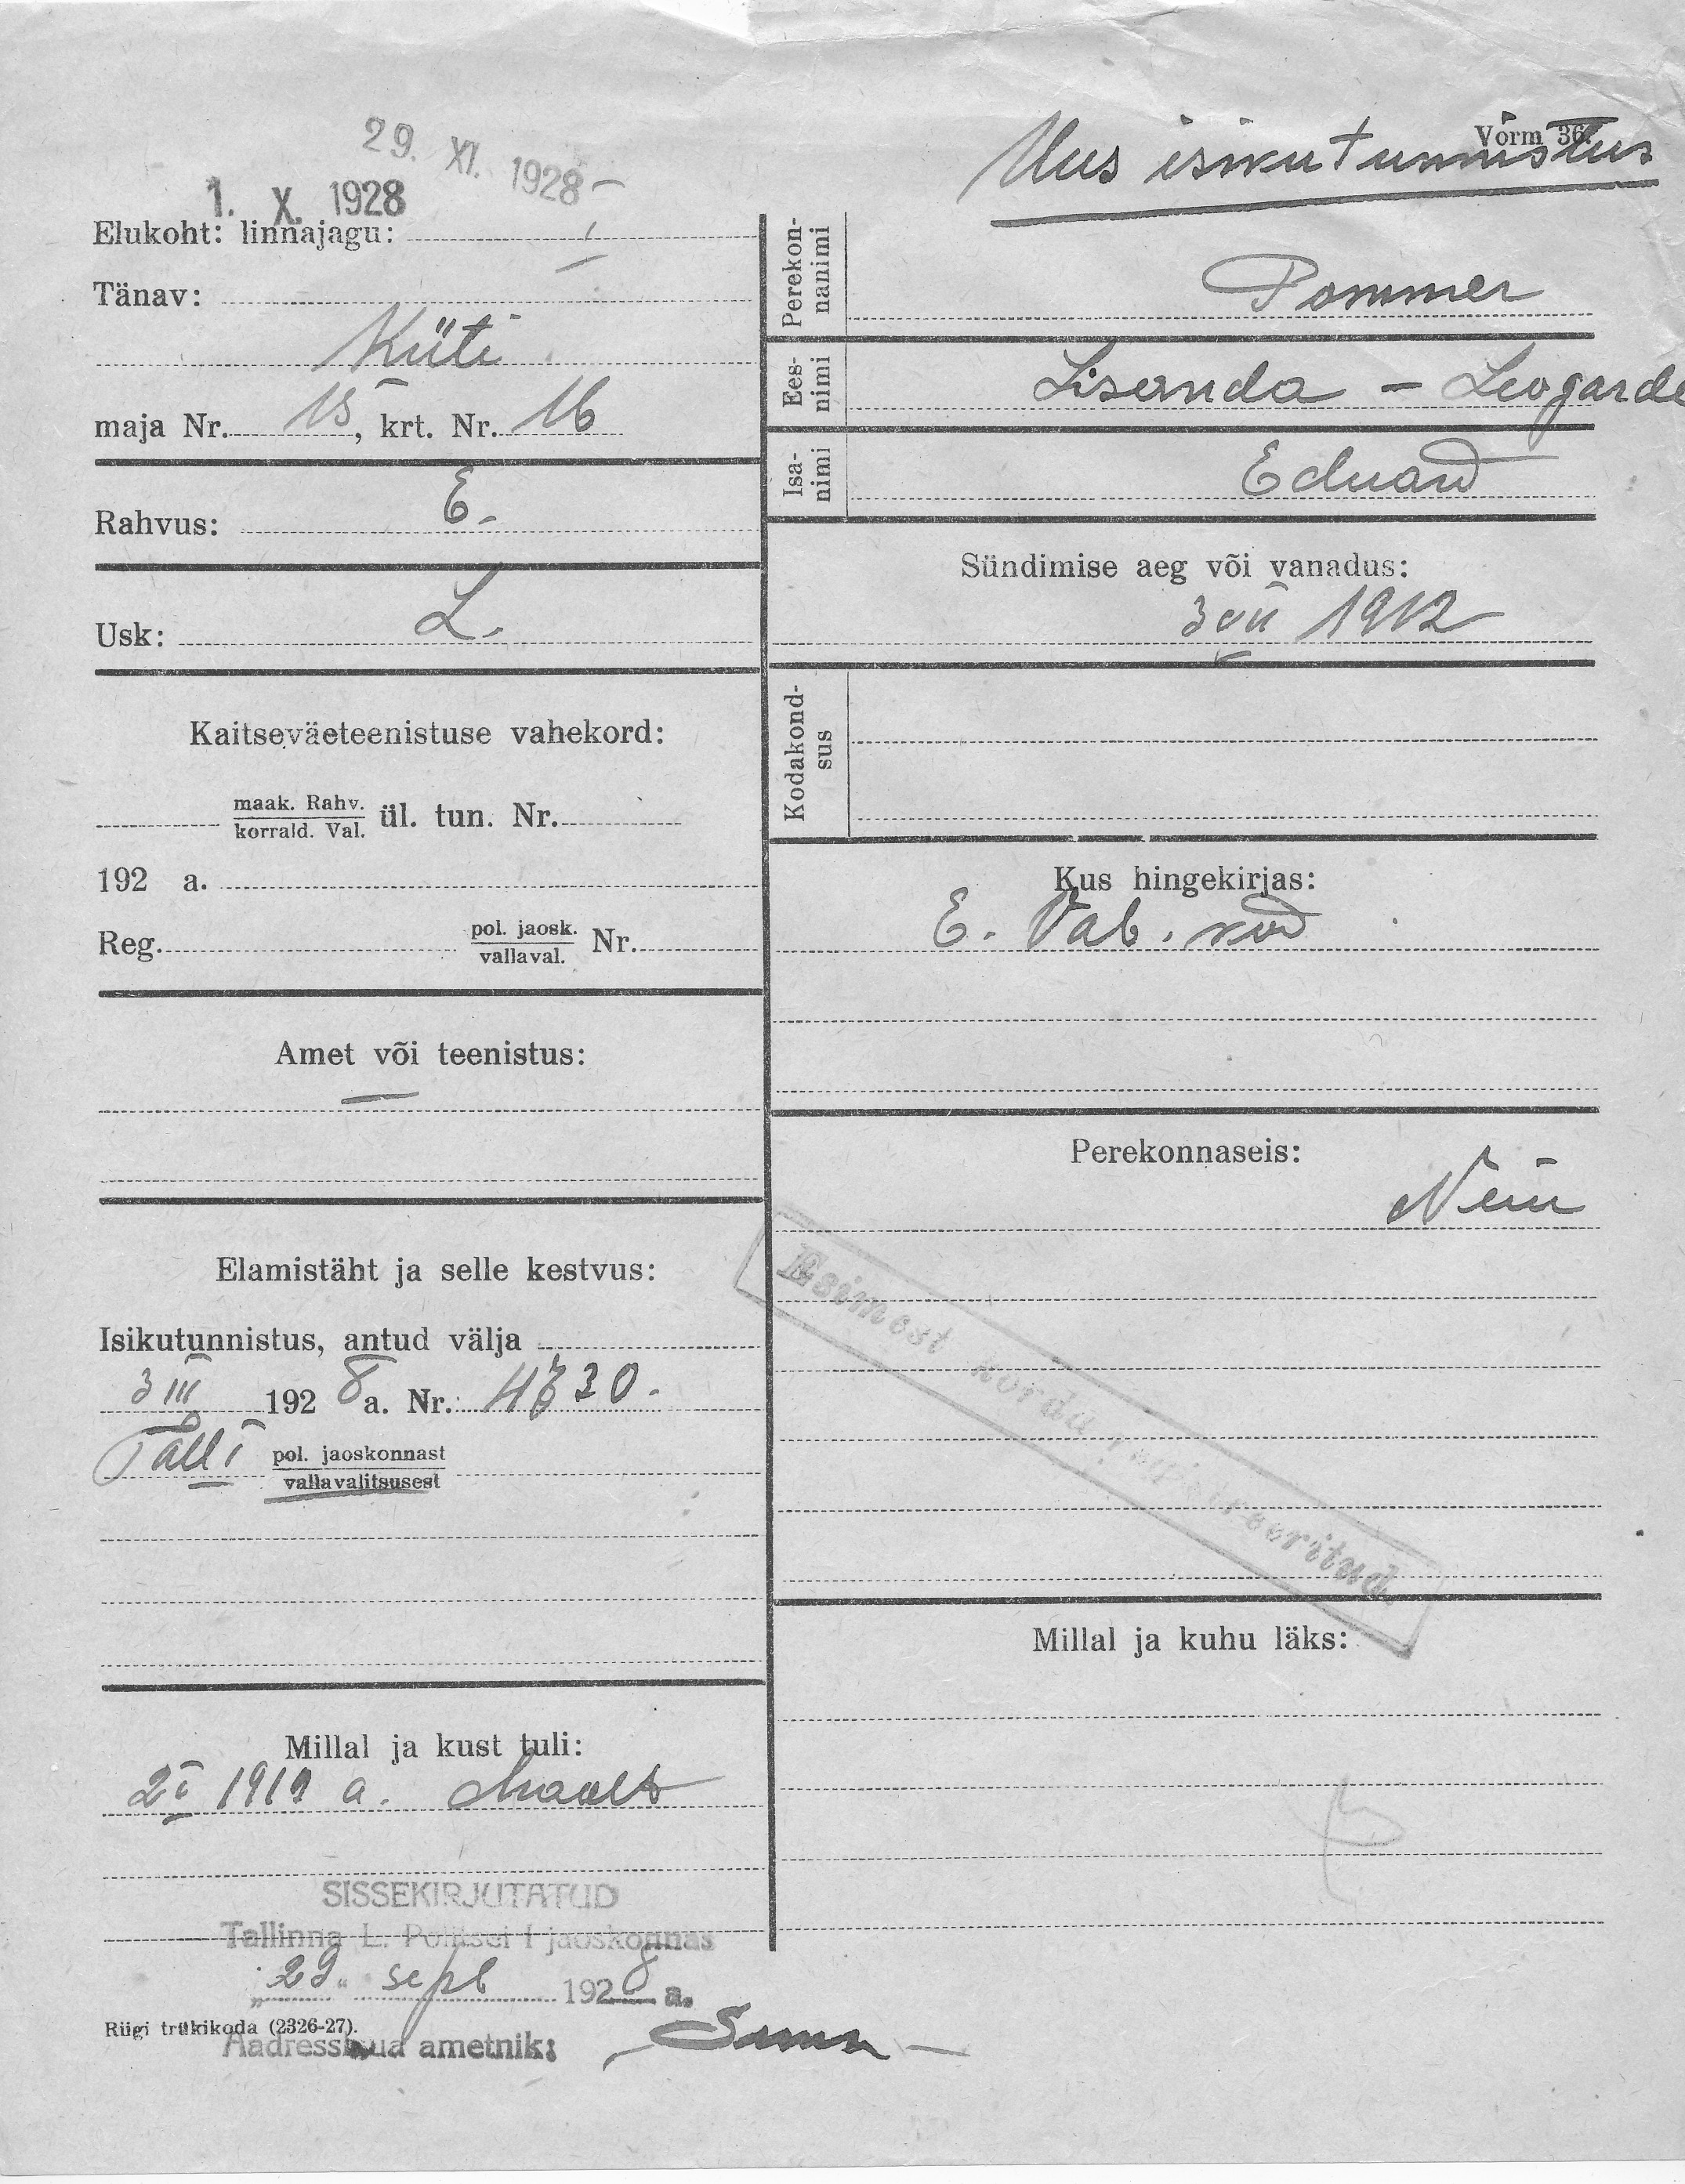 29. XI. 1928
1. X. 1928
Uus isikutunnistus
Vorm 36.
Elukoht: linnajagu: I
Tänav:
Küti
maja Nr. 15, krt. Nr. 16
Rahvus: E.
Usk: L.
Kaitseväeteenistuse vahekord:
maak. Rahv.
korrald. Val. ül. tun. Nr.
192 a.
Reg. pol. jaosk.
vallaval. Nr.
Amet või teenistus:
—
Elamistäht ja selle kestvus:
Isikutunnistus, antud välja
3 III 1928 a. Nr. 4730.
Tall I pol. jaoskonnast
vallavalitsusest
Millal ja kust tuli:
2 I 1919 a. Maalt
SISSEKIRJUTATUD
Tallinna L. Politsei I jaoskonnas
"29" sept 1928 a.
Riigi trükikoda (2326-27).
Aadresslaua ametnik:
Perekon-
nanimi
Pommer
Ees-
nimi
Lisanda - Leogarde
Isa-
nimi
Eduard
Sündimise aeg või vanadus:
3 VII 1912
Kodakond-
sus
Kus hingekirjas:
E. Vab. kod
Perekonnaseis:
Neiu
Esimest korda registreeritud.
Millal ja kuhu läks: